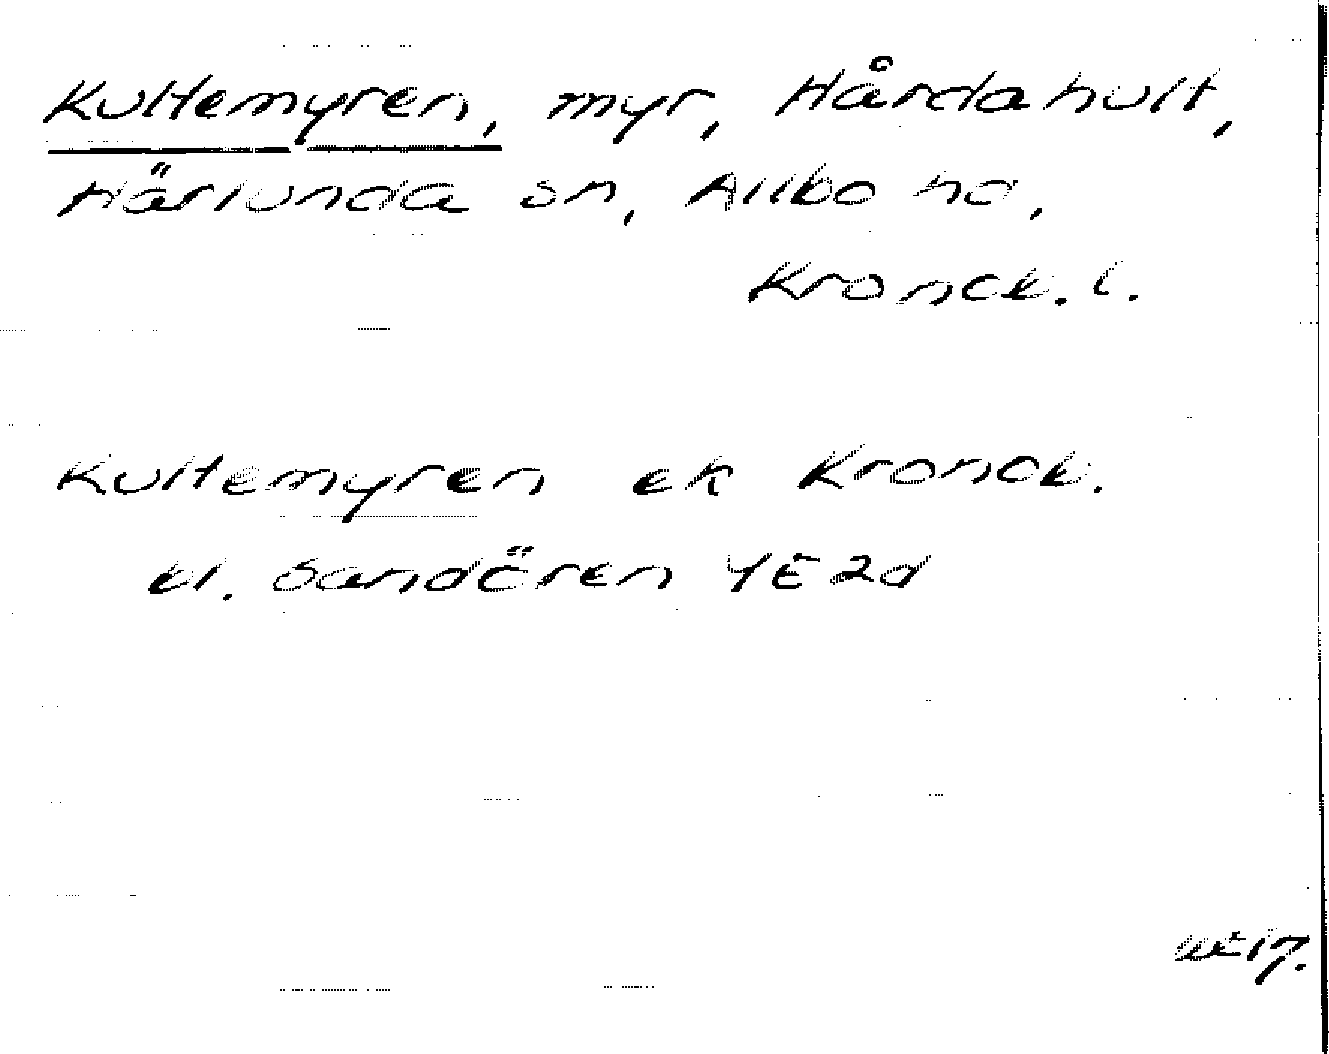 Kultemyren, myr, Hårdahult,
Härlunda sn, Allbo hd,
Kronob. l.
Kultemyren ek Kronob.
bl. Sandören 4E2d